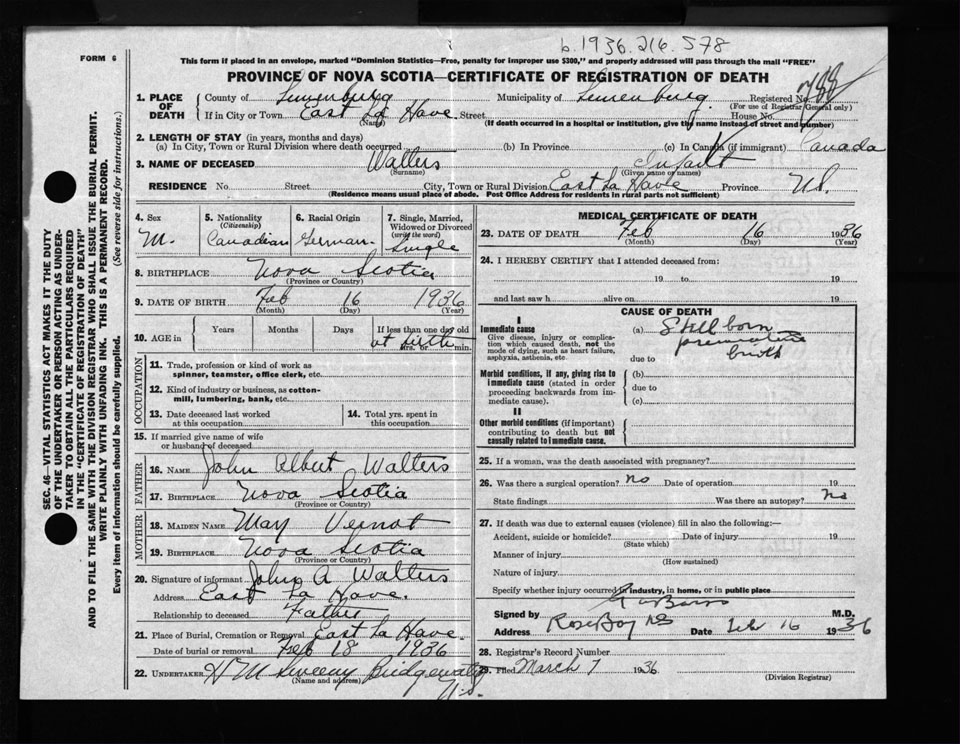 b.1936.216.578
FORM 6
This form if placed in an envelope, marked "Dominion Statistics—Free, penalty for improper use $300," and properly addressed will pass through the mail "FREE"
PROVINCE OF NOVA SCOTIA—CERTIFICATE OF REGISTRATION OF DEATH
1. PLACE OF DEATH County of Lunenburg Municipality of Lunenburg Registered No.
(For use of Registrar General only)
If in City or Town East La Have Street House No.
(Name) (If death occurred in a hospital or institution, give the name instead of street and number)
2. LENGTH OF STAY (in years, months and days)
(a) In City, Town or Rural Division where death occurred (b) In Province (c) In Canada (if immigrant) Canada
3. NAME OF DECEASED Walters Infant
(Surname) (Given name or names)
RESIDENCE No. Street City, Town or Rural Division East La Have Province N.S.
(Residence means usual place of abode. Post Office Address for residents in rural parts not sufficient)
SEC. 46—VITAL STATISTICS ACT MAKES IT THE DUTY
OF THE UNDERTAKER OR PERSON ACTING AS UNDER-
TAKER TO OBTAIN ALL THE PARTICULARS REQUIRED
IN THE "CERTIFICATE OF REGISTRATION OF DEATH"
AND TO FILE THE SAME WITH THE DIVISION REGISTRAR WHO SHALL ISSUE THE BURIAL PERMIT.
WRITE PLAINLY WITH UNFADING INK. THIS IS A PERMANENT RECORD.
Every item of information should be carefully supplied. (See reverse side for instructions.)
4. Sex
M.
5. Nationality
(Citizenship)
Canadian
6. Racial Origin
German
7. Single, Married,
Widowed or Divorced
(write the word)
Single
8. BIRTHPLACE Nova Scotia
(Province or Country)
9. DATE OF BIRTH Feb 16 1936
(Month) (Day) (Year)
10. AGE in Years Months Days If less than one day old
at birth
hrs. or min.
OCCUPATION
11. Trade, profession or kind of work as
spinner, teamster, office clerk, etc.
12. Kind of industry or business, as cotton-
mill, lumbering, bank, etc.
13. Date deceased last worked
at this occupation
14. Total yrs. spent in
this occupation
15. If married give name of wife
or husband of deceased
FATHER
16. NAME John Albert Walters
17. BIRTHPLACE Nova Scotia
(Province or Country)
MOTHER
18. MAIDEN NAME May Veinot
19. BIRTHPLACE Nova Scotia
(Province or Country)
20. Signature of informant John A Walters
Address East La Have.
Relationship to deceased Father
21. Place of Burial, Cremation or Removal East La Have.
Date of burial or removal Feb 18 1936
22. UNDERTAKER H M Sweeny Bridgewater
(Name and address) N.S.
MEDICAL CERTIFICATE OF DEATH
23. DATE OF DEATH Feb 16 1936
(Month) (Day) (Year)
24. I HEREBY CERTIFY that I attended deceased from:
19 to 19
and last saw h alive on 19
CAUSE OF DEATH
I
Immediate cause
Give disease, injury or complica-
tion which caused death, not the
mode of dying, such as heart failure,
asphyxia, asthenia, etc.
(a) Still born
premature
birth
due to
Morbid conditions, if any, giving rise to
immediate cause (stated in order
proceeding backwards from im-
mediate cause).
(b)
due to
(c)
II
Other morbid conditions (if important)
contributing to death but not
causally related to immediate cause.
25. If a woman, was the death associated with pregnancy?
26. Was there a surgical operation? no Date of operation 19
State findings Was there an autopsy? no
27. If death was due to external causes (violence) fill in also the following:—
Accident, suicide or homicide? Date of injury 19
(State which)
Manner of injury
(How sustained)
Nature of injury
Specify whether injury occurred in industry, in home, or in public place
Signed by M.D.
Address Rose Bay NS Date Feb 16 1936
28. Registrar's Record Number
29. Filed March 7 1936
(Division Registrar)